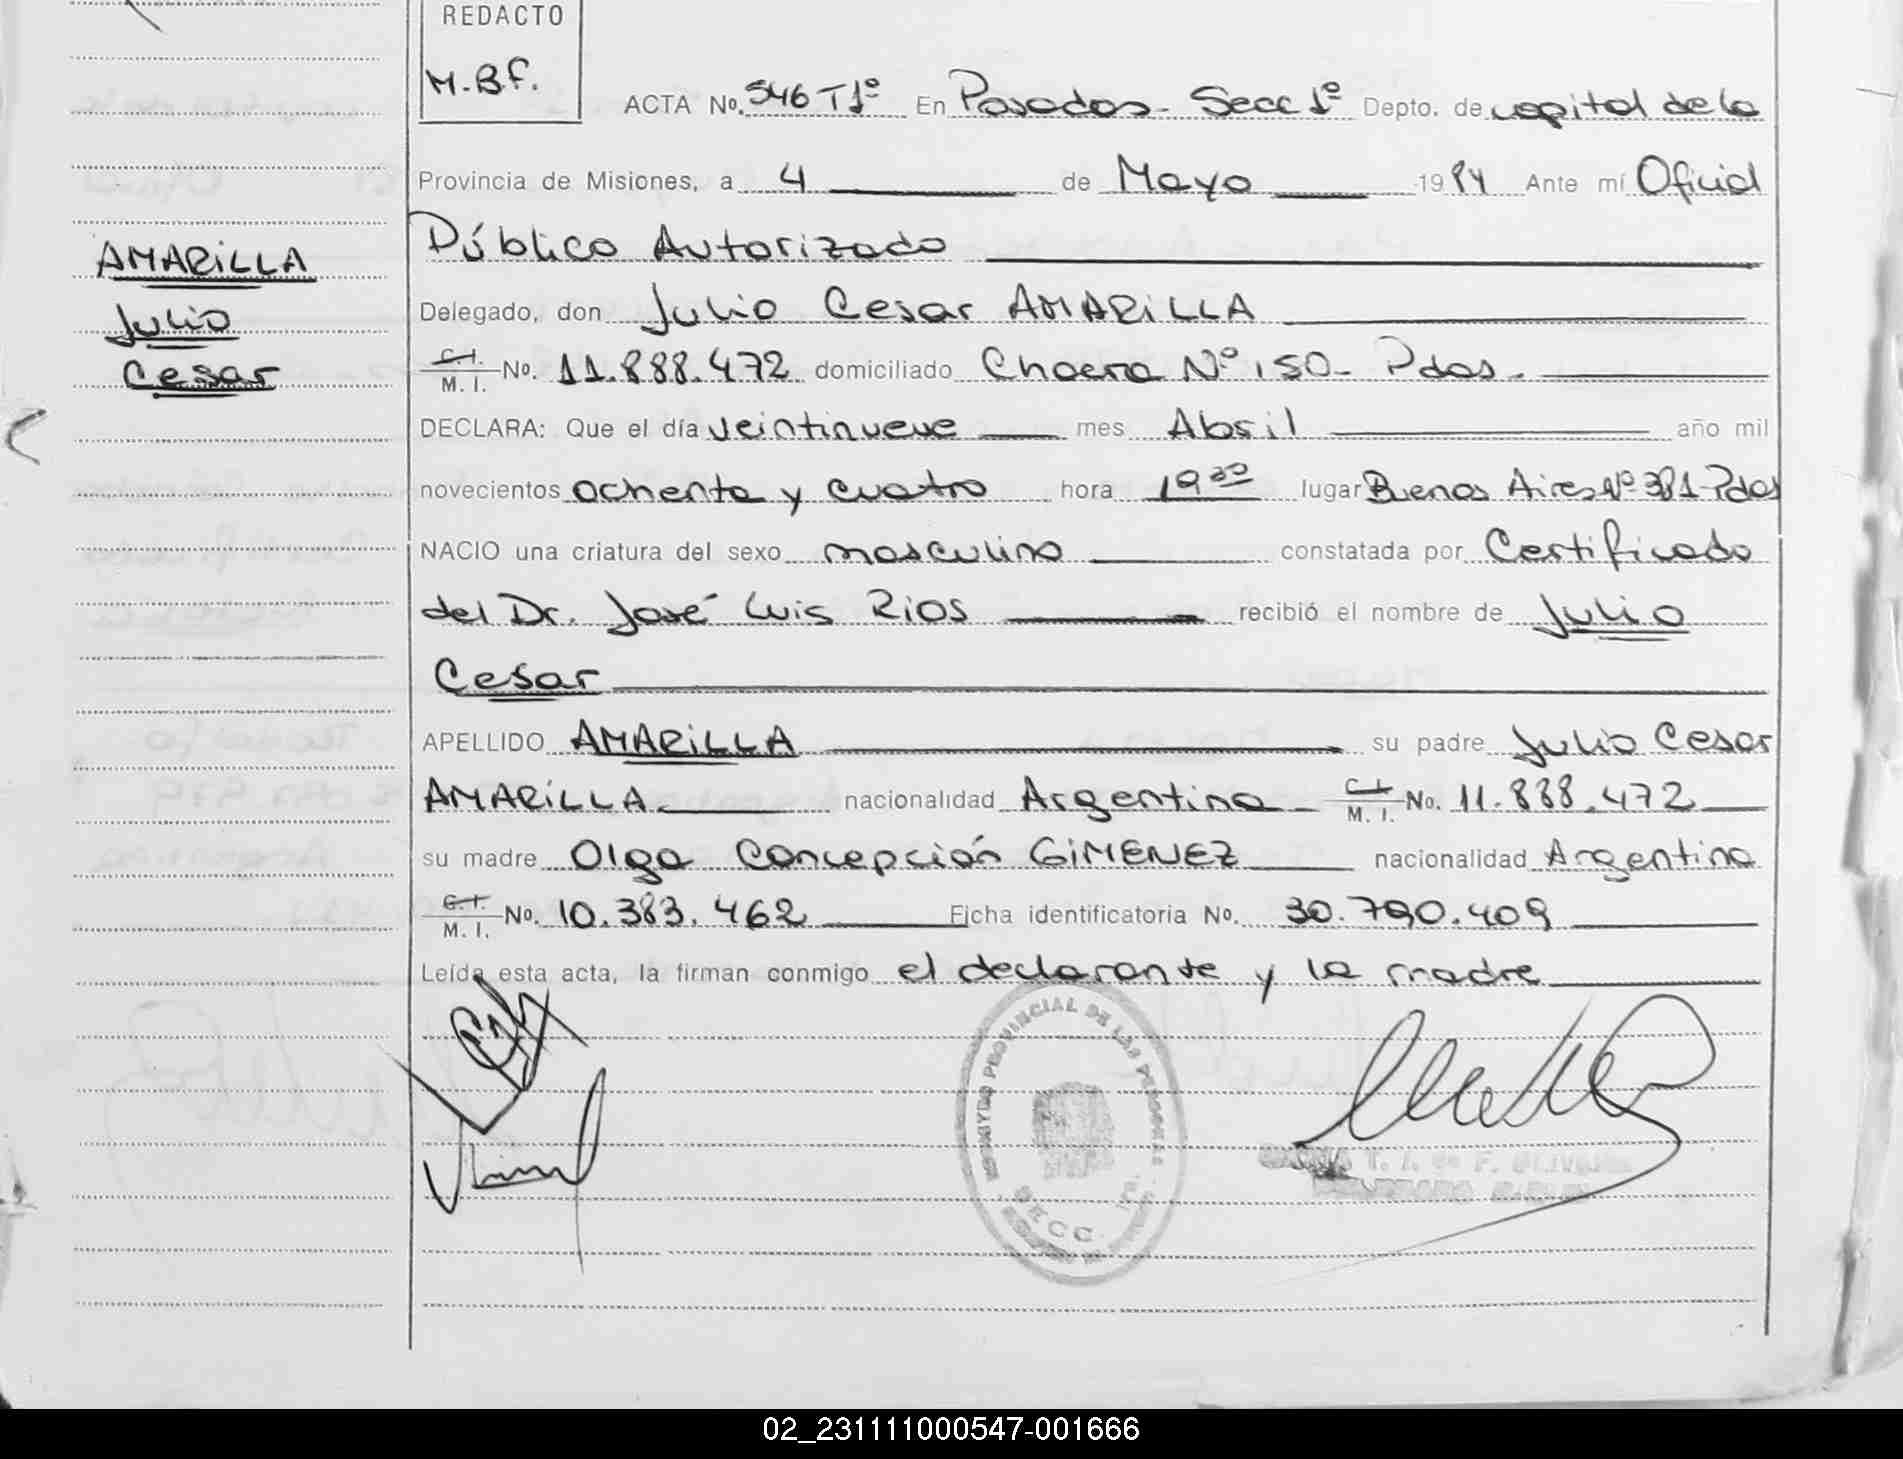 REDACTO
M.B.F.
ACTA No. 546 T1º En Posadas - Secc 1º Depto. de capital de la
Provincia de Misiones, a 4 de Mayo 1984 Ante mí Oficial
Público Autorizado
AMARILLA
Julio
Cesar
Delegado, don Julio Cesar AMARILLA
C.I. M. I. No. 11.888.472 domiciliado Chacra Nº 150 - Pdas.
DECLARA: Que el día veintinueve mes Abril año mil
novecientos ochenta y cuatro hora 19³⁰ lugar Buenos Aires Nº 381 Pdas
NACIO una criatura del sexo masculino constatada por Certificado
del Dr. José Luis Rios recibió el nombre de Julio
Cesar
APELLIDO AMARILLA su padre Julio Cesar
AMARILLA nacionalidad Argentina C.I. M. I. No. 11.888.472
su madre Olga Concepción GIMENEZ nacionalidad Argentina
C.I. M. I. No. 10.383.462 Ficha identificatoria No. 30.790.409
Leída esta acta, la firman conmigo el declarante y la madre
PROVINCIAL DE LAS PERSONAS
SECC. 1ra.
02_231111000547-001666